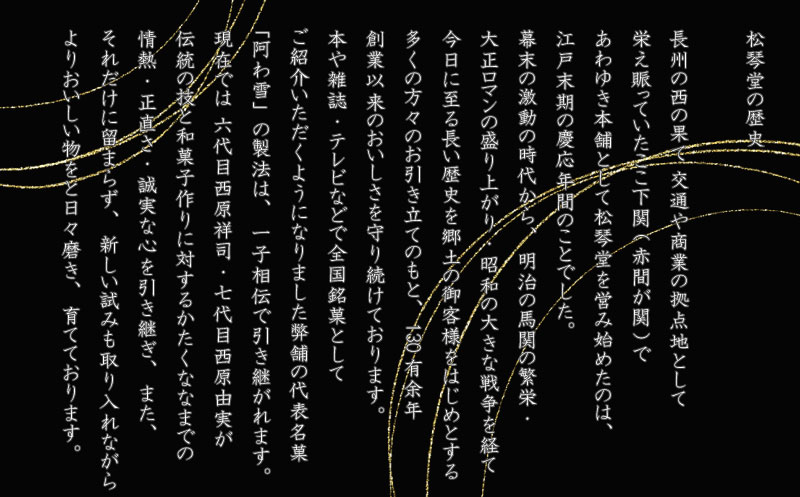 松琴堂の歴史
長州の西の果て交通や商業の拠点地として
栄え賑っていたここ下関（赤間が関）で
あわゆき本舗として松琴堂を営み始めたのは、
江戸末期の慶応年間のことでした。
幕末の激動の時代から、明治の馬関の繁栄・
大正ロマンの盛り上がり・昭和の大きな戦争を経て
今日に至る長い歴史を郷土の御客様をはじめとする
多くの方々のお引き立てのもと、130有余年
創業以来のおいしさを守り続けております。
本や雑誌・テレビなどで全国銘菓として
ご紹介いただくようになりました弊舗の代表名菓
「阿わ雪」の製法は、一子相伝で引き継がれます。
現在では 六代目西原祥司・七代目西原由実が
伝統の技と和菓子作りに対するかたくななまでの
情熱・正直さ・誠実な心を引き継ぎ、また、
それだけに留まらず、新しい試みも取り入れながら
よりおいしい物をと日々磨き、育てております。